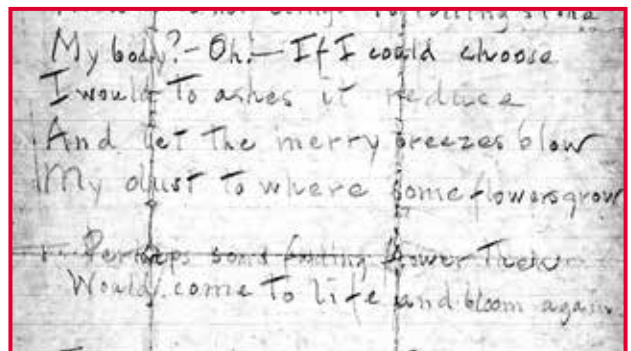 rolling stone
My body? - Oh! - If I could choose
I would to ashes it reduce
And let the merry breezes blow
My dust to where some flowers grow
Perhaps some fading flower then
Would come to life and bloom again